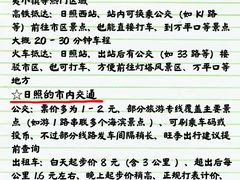 高铁抵达：日照西站，站内可换乘公交（如 K1 路
等）前往市区景点，也能直接打车，到万平口等景点
大概 20 - 30 分钟车程
火车抵达：日照站，出站后有公交（如 33 路等）接
驳市区，也可打车，方便前往灯塔风景区、万平口等
地方
☆日照的市内交通
公交：票价多为 1 - 2 元，部分旅游专线覆盖主要景
点（如游 1 路串联多个海滨景点），可刷乘车码或
投币，不过部分线路发车间隔稍长，旺季出行建议提
前查询
出租车：白天起步价 8 元（含 3 公里），超出后每
公里 1.6 元左右，晚上起步价稍高，正规打表计价，